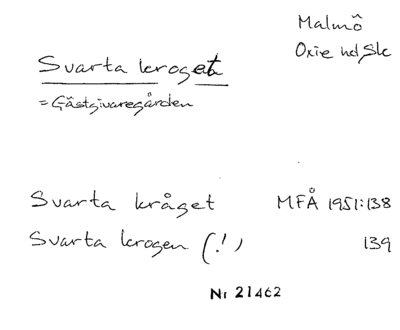 Malmö
Oxie hd Sk
Svarta kroget
= Gästgivaregården
Svarta kråget MFÅ 1951:138
Svarta krogen (!) 139
Nr 21462